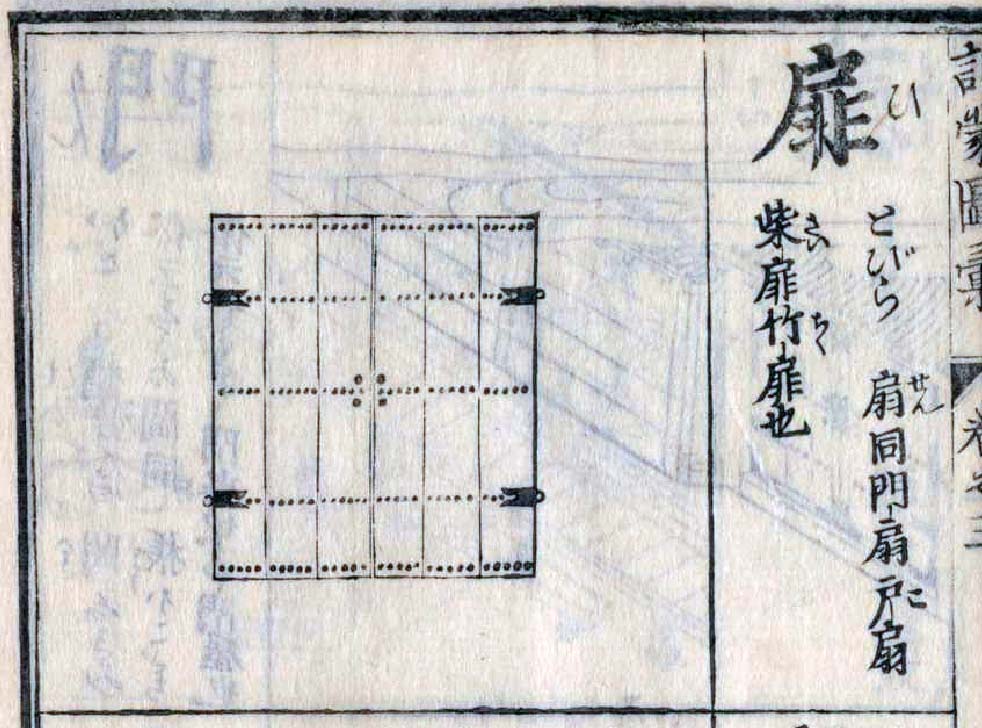 訓蒙圖彙 卷之三
扉 ひ
とびら 扇同門扇戸扇
せん こ
柴扉竹扉也
さい ちく